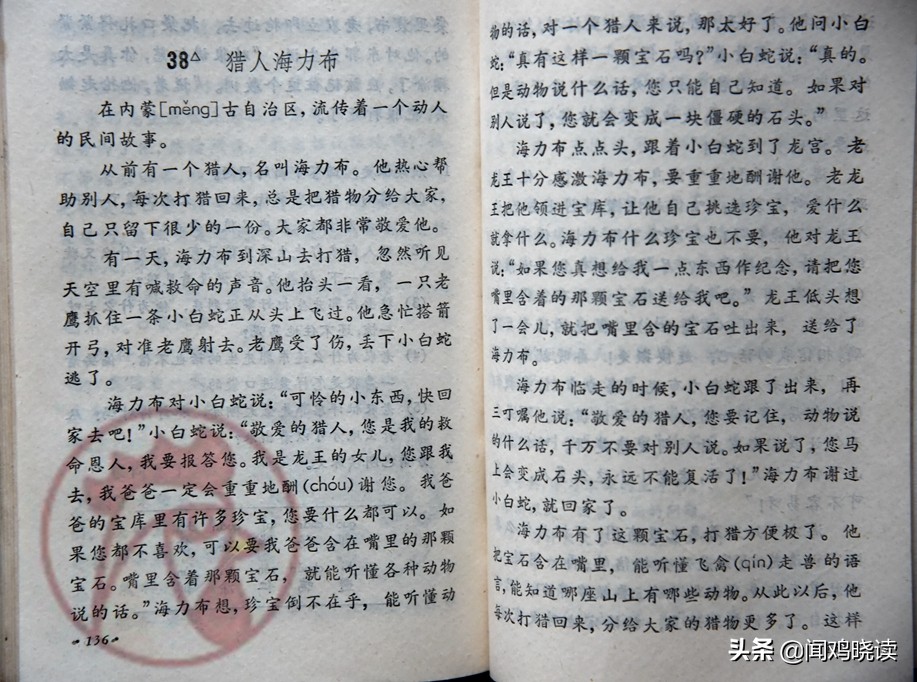 38△ 猎人海力布
在内蒙[měng]古自治区,流传着一个动人
的民间故事。
从前有一个猎人,名叫海力布。他热心帮
助别人,每次打猎回来,总是把猎物分给大家,
自己只留下很少的一份。大家都非常敬爱他。
有一天,海力布到深山去打猎,忽然听见
天空里有喊救命的声音。他抬头一看,一只老
鹰抓住一条小白蛇正从头上飞过。他急忙搭箭
开弓,对准老鹰射去。老鹰受了伤,丢下小白蛇
逃了。
海力布对小白蛇说:“可怜的小东西,快回
家去吧!”小白蛇说:“敬爱的猎人,您是我的救
命恩人,我要报答您。我是龙王的女儿,您跟我
去,我爸爸一定会重重地酬(chóu)谢您。我爸
爸的宝库里有许多珍宝,您要什么都可以。如
果您都不喜欢,可以要我爸爸含在嘴里的那颗
宝石。嘴里含着那颗宝石,就能听懂各种动物
说的话。”海力布想,珍宝倒不在乎,能听懂动
136
物的话,对一个猎人来说,那太好了。他问小白
蛇:“真有这样一颗宝石吗?”小白蛇说:“真的。
但是动物说什么话,您只能自己知道。如果对
别人说了,您就会变成一块僵硬的石头。”
海力布点点头,跟着小白蛇到了龙宫。老
龙王十分感激海力布,要重重地酬谢他。老龙
王把他领进宝库,让他自己挑选珍宝,爱什么
就拿什么。海力布什么珍宝也不要,他对龙王
说:“如果您真想给我一点东西作纪念,请把您
嘴里含着的那颗宝石送给我吧。”龙王低头想
了一会儿,就把嘴里含的宝石吐出来,送给了
海力布。
海力布临走的时候,小白蛇跟了出来,再
三叮嘱他说:“敬爱的猎人,您要记住,动物说
的什么话,千万不要对别人说。如果说了,您马
上会变成石头,永远不能复活了!”海力布谢过
小白蛇,就回家了。
海力布有了这颗宝石,打猎方便极了。他
把宝石含在嘴里,能听懂飞禽(qín)走兽的语
言,能知道哪座山上有哪些动物。从此以后,他
每次打猎回来,分给大家的猎物更多了。这样
头条 @闻鸡晓读